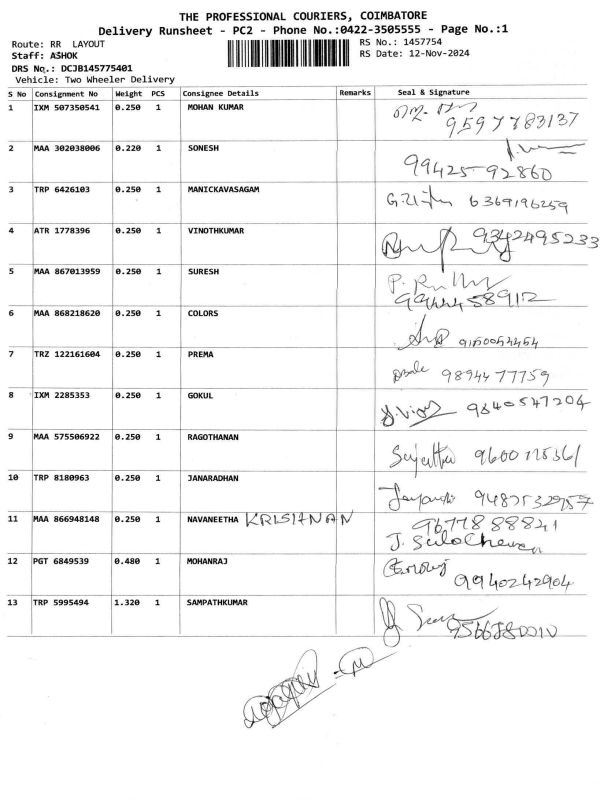 THE PROFESSIONAL COURIERS, COIMBATORE
Delivery Runsheet - PC2 - Phone No.:0422-3505555 - Page No.:1
Route: RR LAYOUT RS No.: 1457754
Staff: ASHOK RS Date: 12-Nov-2024
DRS No.: DCJB145775401
Vehicle: Two Wheeler Delivery
S No Consignment No Weight PCS Consignee Details Remarks Seal & Signature
1 IXM 507350541 0.250 1 MOHAN KUMAR
9597783137
2 MAA 302038006 0.220 1 SONESH
99425-92860
3 TRP 6426103 0.250 1 MANICKAVASAGAM 6369196259
4 ATR 1778396 0.250 1 VINOTHKUMAR 9342495233
5 MAA 867013959 0.250 1 SURESH
9944458912
6 MAA 868218620 0.250 1 COLORS
7 TRZ 122161604 0.250 1 PREMA 9894477759
8 IXM 2285353 0.250 1 GOKUL 9840547204
9 MAA 575506922 0.250 1 RAGOTHANAN
Sujatha
10 TRP 8180963 0.250 1 JANARADHAN
11 MAA 866948148 0.250 1 NAVANEETHA KRISHNAN 9677888841
12 PGT 6849539 0.480 1 MOHANRAJ
9940242904
13 TRP 5995494 1.320 1 SAMPATHKUMAR